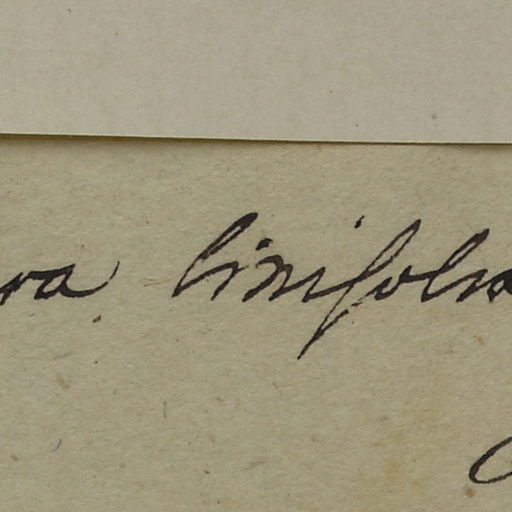 ra linifolia